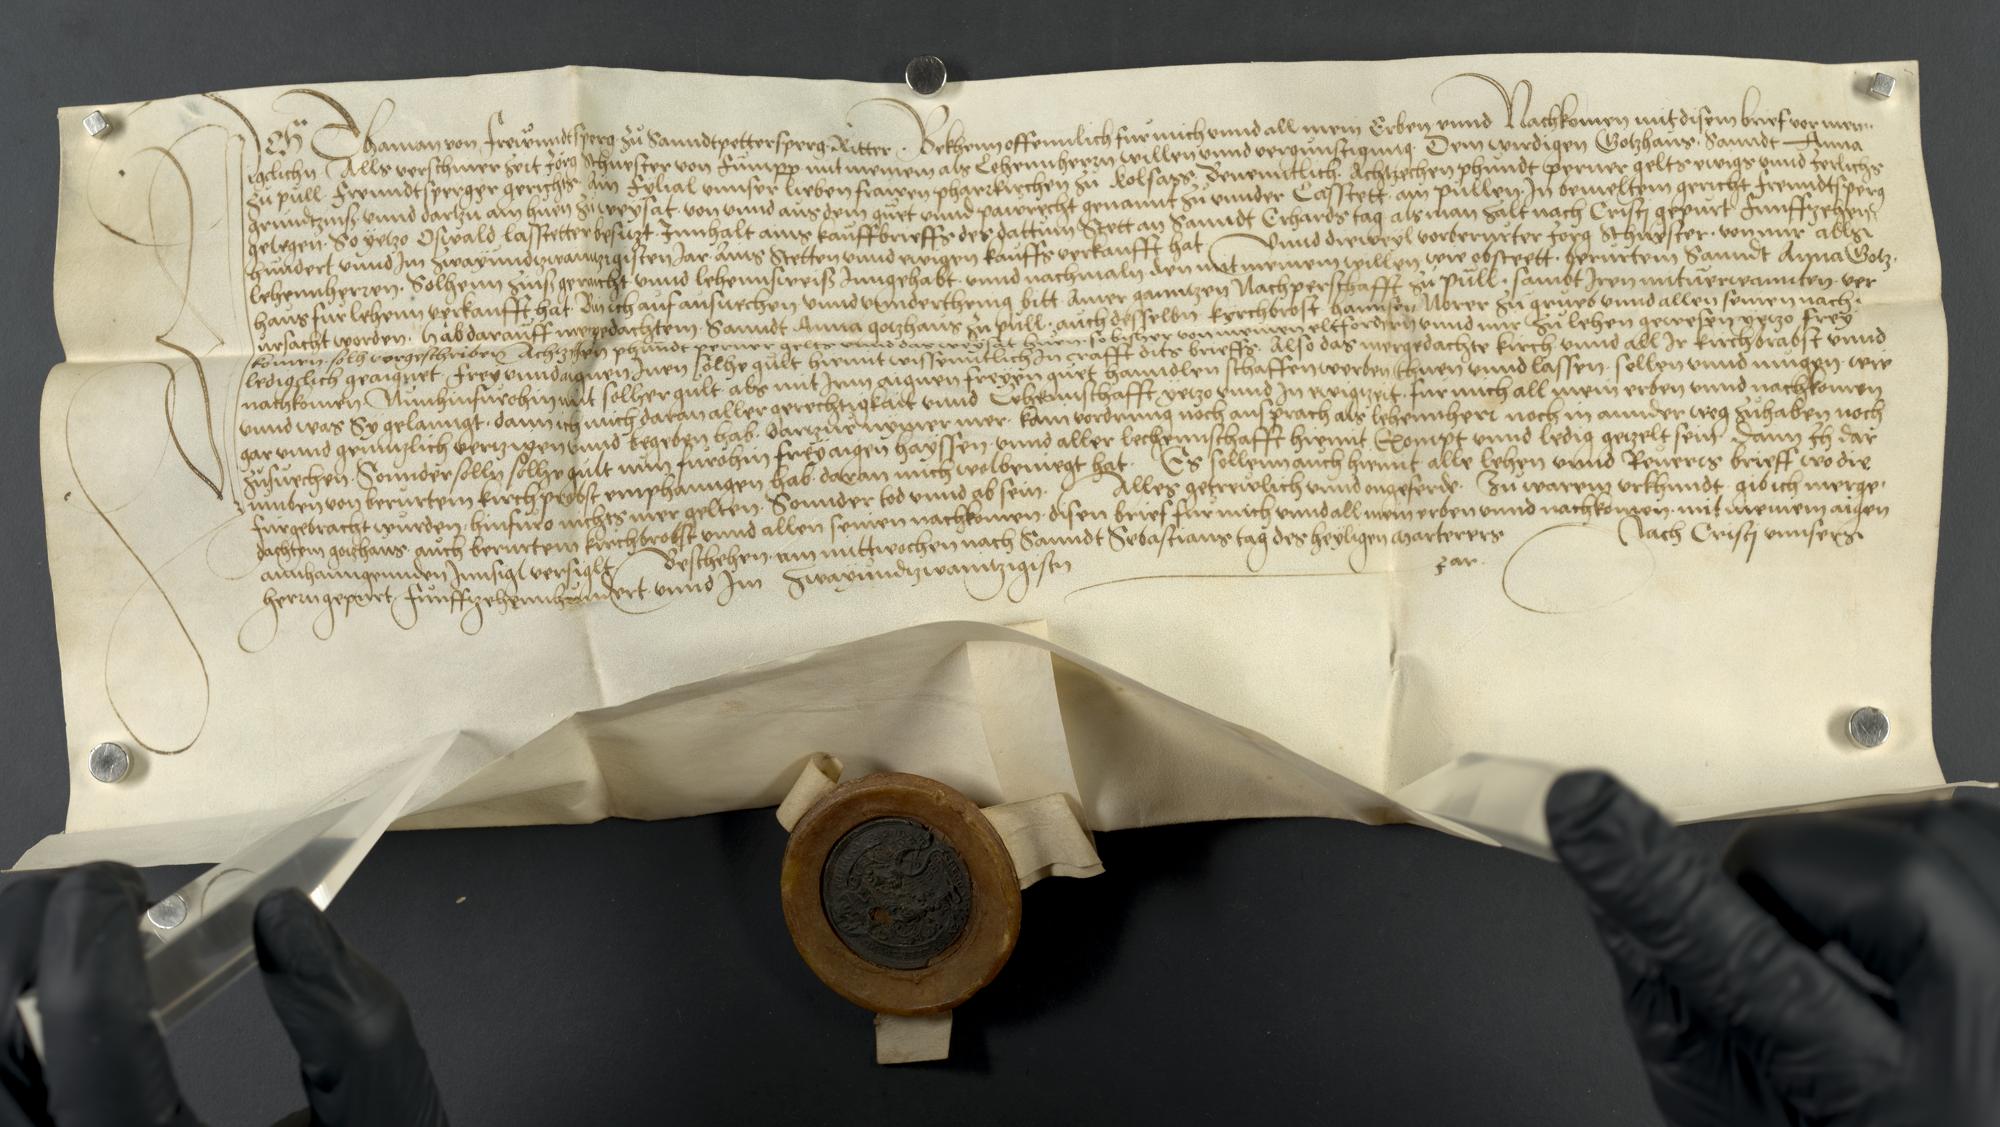 Ich Thaman von Freiundtsperg zu Sanndtpettersperg Ritter. Bekhenn offennlich fur mich unnd all mein Erben unnd Nachkomen mit disem brief vor men-
igclichn Alls verschiner zeit Jörg Schuester von mit meinem als Lehennherrn willen unnd vergunstigung. Dem wirdigen Gotzhaus Sanndt Anna
zu püll Freundtsperger gerichts. Am Fylial unnser lieben frawen pharrkirchen zu Kolsass Benenntlich. Achtzechen phundt perner gelts ewigs unnd Jerlichs
grundtzinss unnd darzu ain huen zu weysat von unnd aus dem guet unnd pawrecht genannt zu unnder Lasstett am püllen. In bemeltem gericht Freundtsperg
gelegen. So yetzo Oswald lasstetter besitzt Innhalt ains kauffbrieffs des dattum Stett an Sanndt Erhards tag als man zalt nach Cristj gepurt Funffzehen-
hundert unnd Im zwayundtzwanntzigisten Jar. Ains Stetten unnd ewigen kauffs verkaufft hat Unnd dieweyl vorberurter Jörg Schuester von mir alls
lehennherren. Solhenn zinss gerechtt unnd lehennsweiss Inngehabt. unnd nachmaln den mit meinem willen wie obsteett. berürtem Sanndt Anna Gotz-
haus für lehenn verkaufft hat. Bin ich auf ansuechen unnd unnderthenig bitt Ainer ganntzen Nachperschafft zu püll. sambt Iren mitverwannten. ver
ursacht worden. Hab darauff mergedachtem. Sanndt Anna gotzhaus zu püll. auch desselbn kyrchbrobst hannsen Norer zu grueb unnd allen seinen nach-
komen. solh vorgeschriben Achtzehen phundt perner gelts unnd das weysat huen. so bisher von meinen elltfordern unnd mir zu lehen gewesen yetzo frey
ledigclich geaignet. Frey unnd aignen Inen solhe gült hiemit wissenntlich In crafft dits brieffs. Also das mergedachte kirch unnd all Ir kirchbrabst unnd
nachkomen Nunhinfurohin mit solher gült. als mit Irm aignen freyen guet hanndlen schaffen werben thuen unnd lassen. sollen unnd mugen. wie
unnd was Sy gelanngt. dann ich mich daran aller gerechtigkait unnd Lehennschafft yetzo unnd In ewigzeit. für mich all mein erben unnd nachkomen
gar unnd genntzlich verzigen unnd begeben hab. Dartzue nymer mer. kain vordrung noch ansprach als lehennherr noch in annder weg zuhaben noch
zusuechen. Sonnder solln solhe gült nun furohin frey aigen hayssen. unnd aller lechennschafft hiemit Exempt unnd ledig getzelt sein. Dann Ich dar
umben von berurtem kirchprobst emphanngen hab. daran mich wolbeniegt hat. Es sollenn auch hiemit alle lehen unnd Revers brieff wo die
fürgebracht wurden. hinfuro nichts mer gelten. Sonnder tod unnd ab sein. Alles getrewlich unnd ongeferde. Zu warem urkhundt. gib ich merge-
dachtem gotzhaus. auch berurtem kirchbrobst unnd allen seinen nachkomen. disen brief für mich unnd all mein erben unnd nachkomen. mit meinem aigen
anhanngennden Innsigl versiglt. Beschehen am mittwochen nach Sanndt Sebastians tag des heyligen Marterers Nach Cristj unnsers
herrn gepurt Funffzehennhundert. unnd Im zwayundtzwanntzigistn Jar.